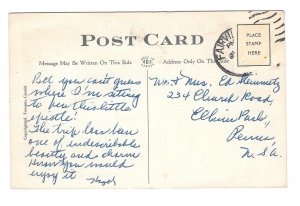 POST CARD
Message May Be Written On This Side
Address Only On This Side
PLACE
STAMP
HERE
Bet you can't guess
where I'm sitting
to pen this little
epistle!
The trip has been
one of indescribable
beauty and charm
Know you would
enjoy it.
Hazel
Mr & Mrs. Ed
234 Church Road,
Elkins Park,
Penna,
U.S.A.